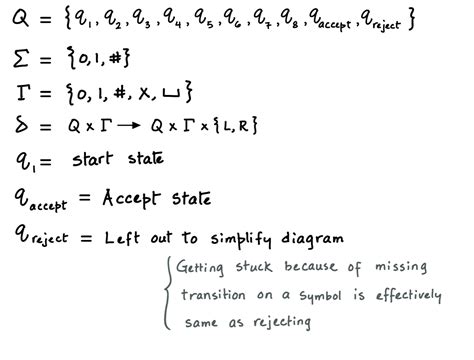 Q = {q₁, q₂, q₃, q₄, q₅, q₆, q₇, q₈, q_accept, q_reject}
Σ = {0,1,#}
Γ = {0,1,#,x,⊔}
δ = Q × Γ → Q × Γ × {L,R}
q₁ = start state
q_accept = Accept state
q_reject = Left out to simplify diagram
{ Getting stuck because of missing
transition on a symbol is effectively
same as rejecting